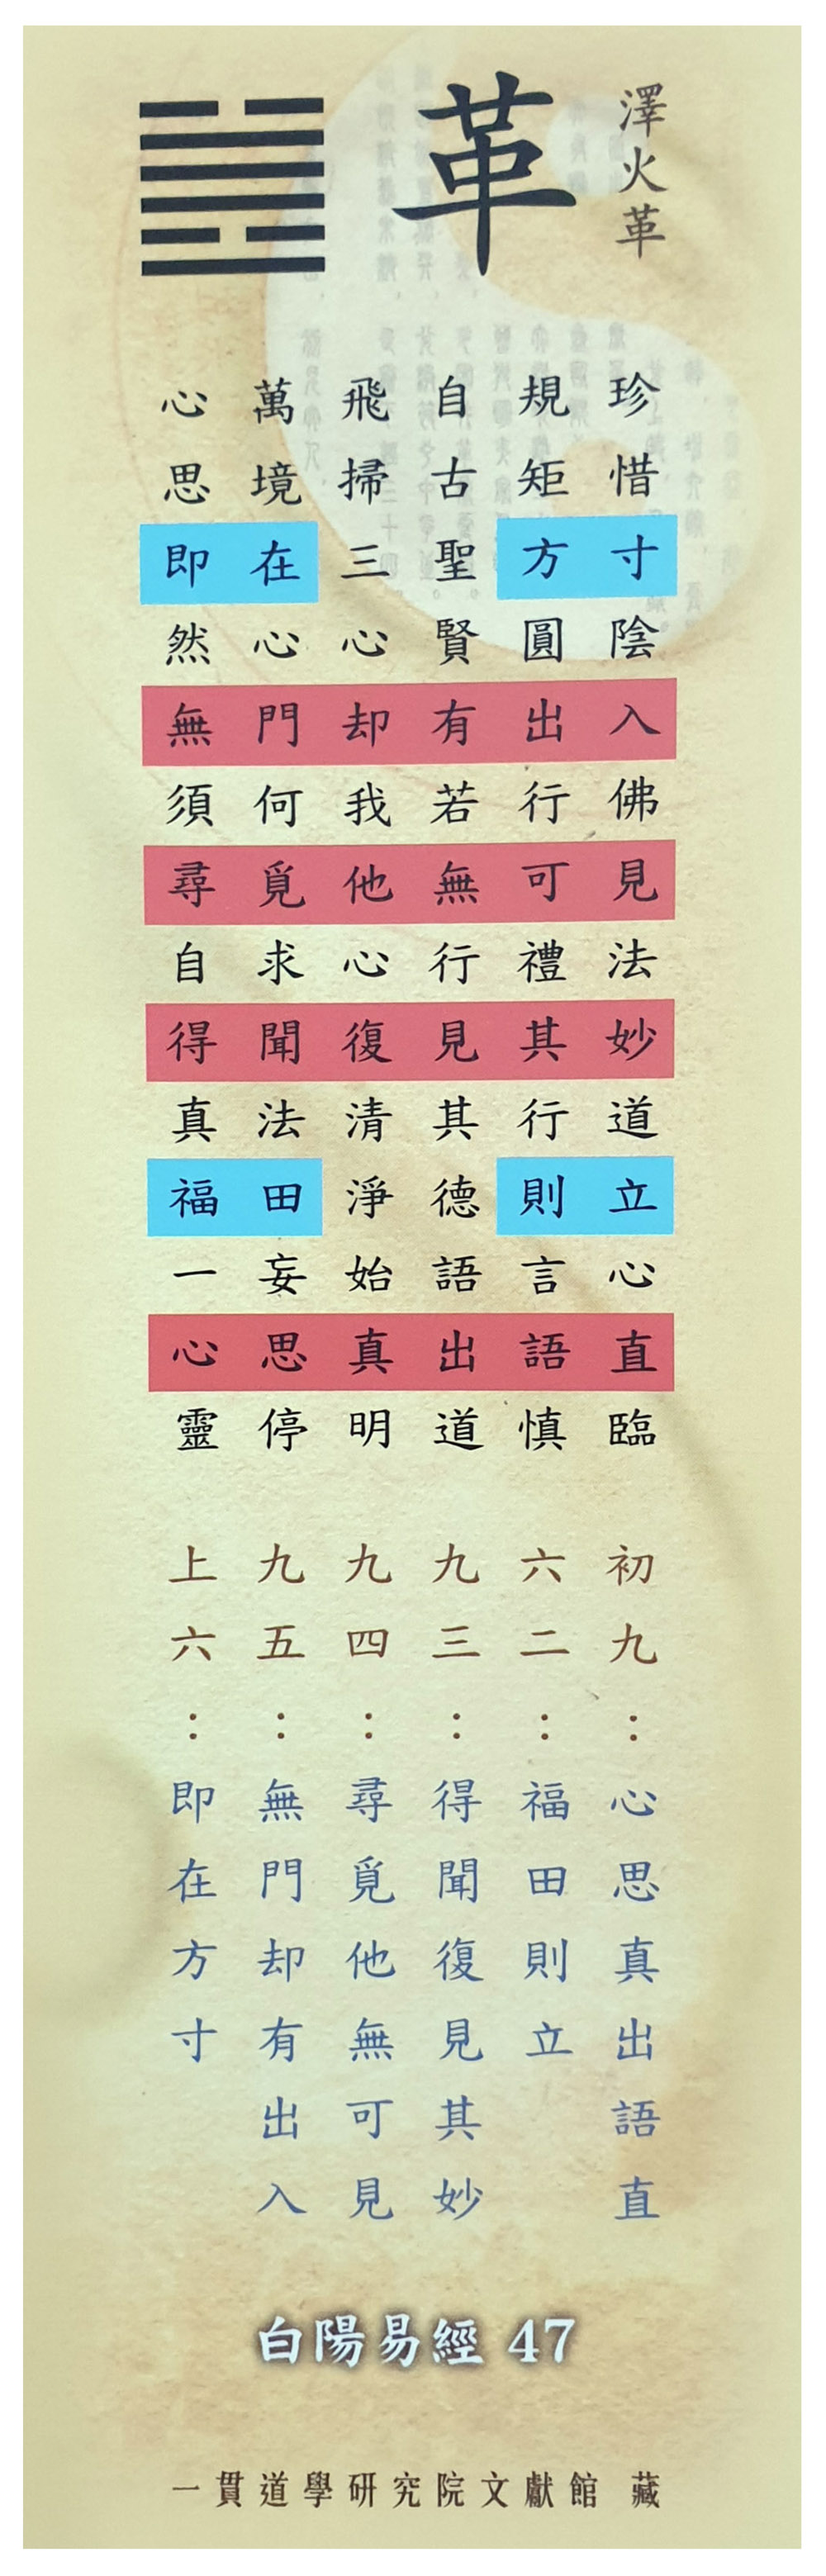 澤火革
革
珍惜寸陰入佛見法妙道立心直臨
規矩方圓出行可禮其行則言語慎
自古聖賢有若無行見其德語出道
飛掃三心却我他心復清淨始真明
萬境在心門何覓求聞法田妄思停
心思即然無須尋自得真福一心靈
初九：心思真出語直
六二：福田則立
九三：得聞復見其妙
九四：尋覓他無可見
九五：無門却有出入
上六：即在方寸
白陽易經 47
一貫道學研究院文獻館 藏